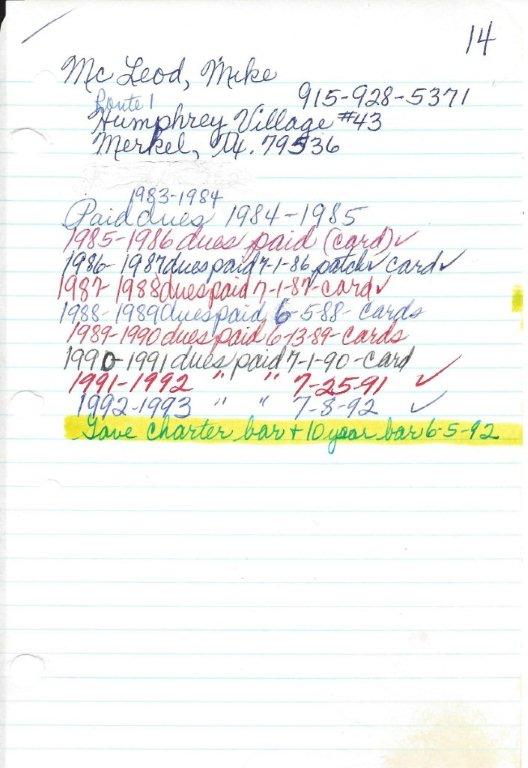 14
Mc Leod, Mike
Route 1
915-928-5371
Humphrey Village #43
Merkel, Tx. 79536
1983-1984
Paid dues 1984-1985
1985-1986 dues paid (card)✓
1986-1987 dues paid 7-1-86 patch✓ card✓
1987-1988 dues paid 7-1-87-card✓
1988-1989 dues paid 6-5-88- cards
1989-1990 dues paid 6-13-89-cards
1990-1991 dues paid 7-1-90-card
1991-1992 " " 7-25-91 ✓
1992-1993 " " 7-8-92 ✓
Gave charter bar + 10 year bar 6-5-92